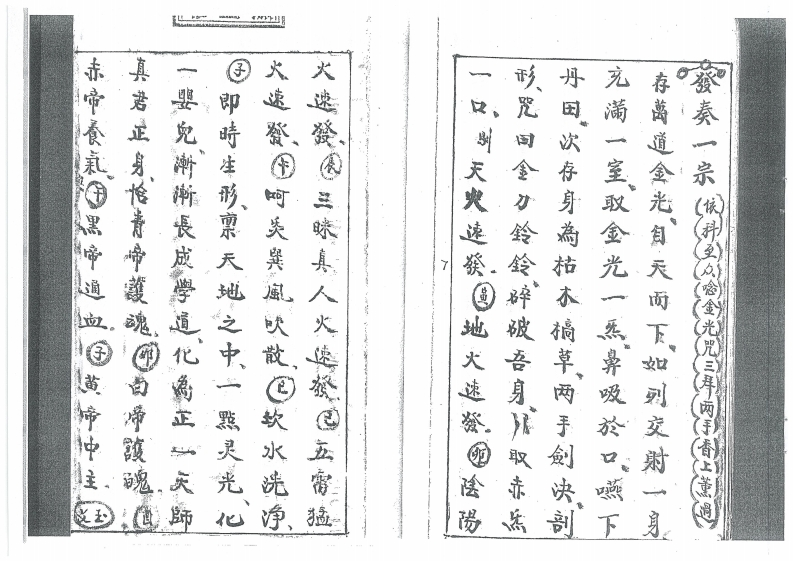 發奏一宗 依科至众唸金光咒三拜兩手香上薰過
存萬道金光自天而下如列交射一身
充滿一室取金光一炁鼻吸於口嚥下
丹田次存身為枯木槁草兩手劍決剖
形咒曰金刀鈴鈴碎破吾身以取赤炁
一口則天火速發寅地火速發卯陰陽
火速發辰三昧真人火速發巳五雷猛
火速發午呵炎巽風吹散巳欽水洗淨
子即時生形禀天地之中一點灵光化
一嬰兒漸漸長成學道化為正一天師
真君正身恰青帝護魂卯白帝護魄酉
赤帝養氣午黑帝通血子黃帝中主玉
7